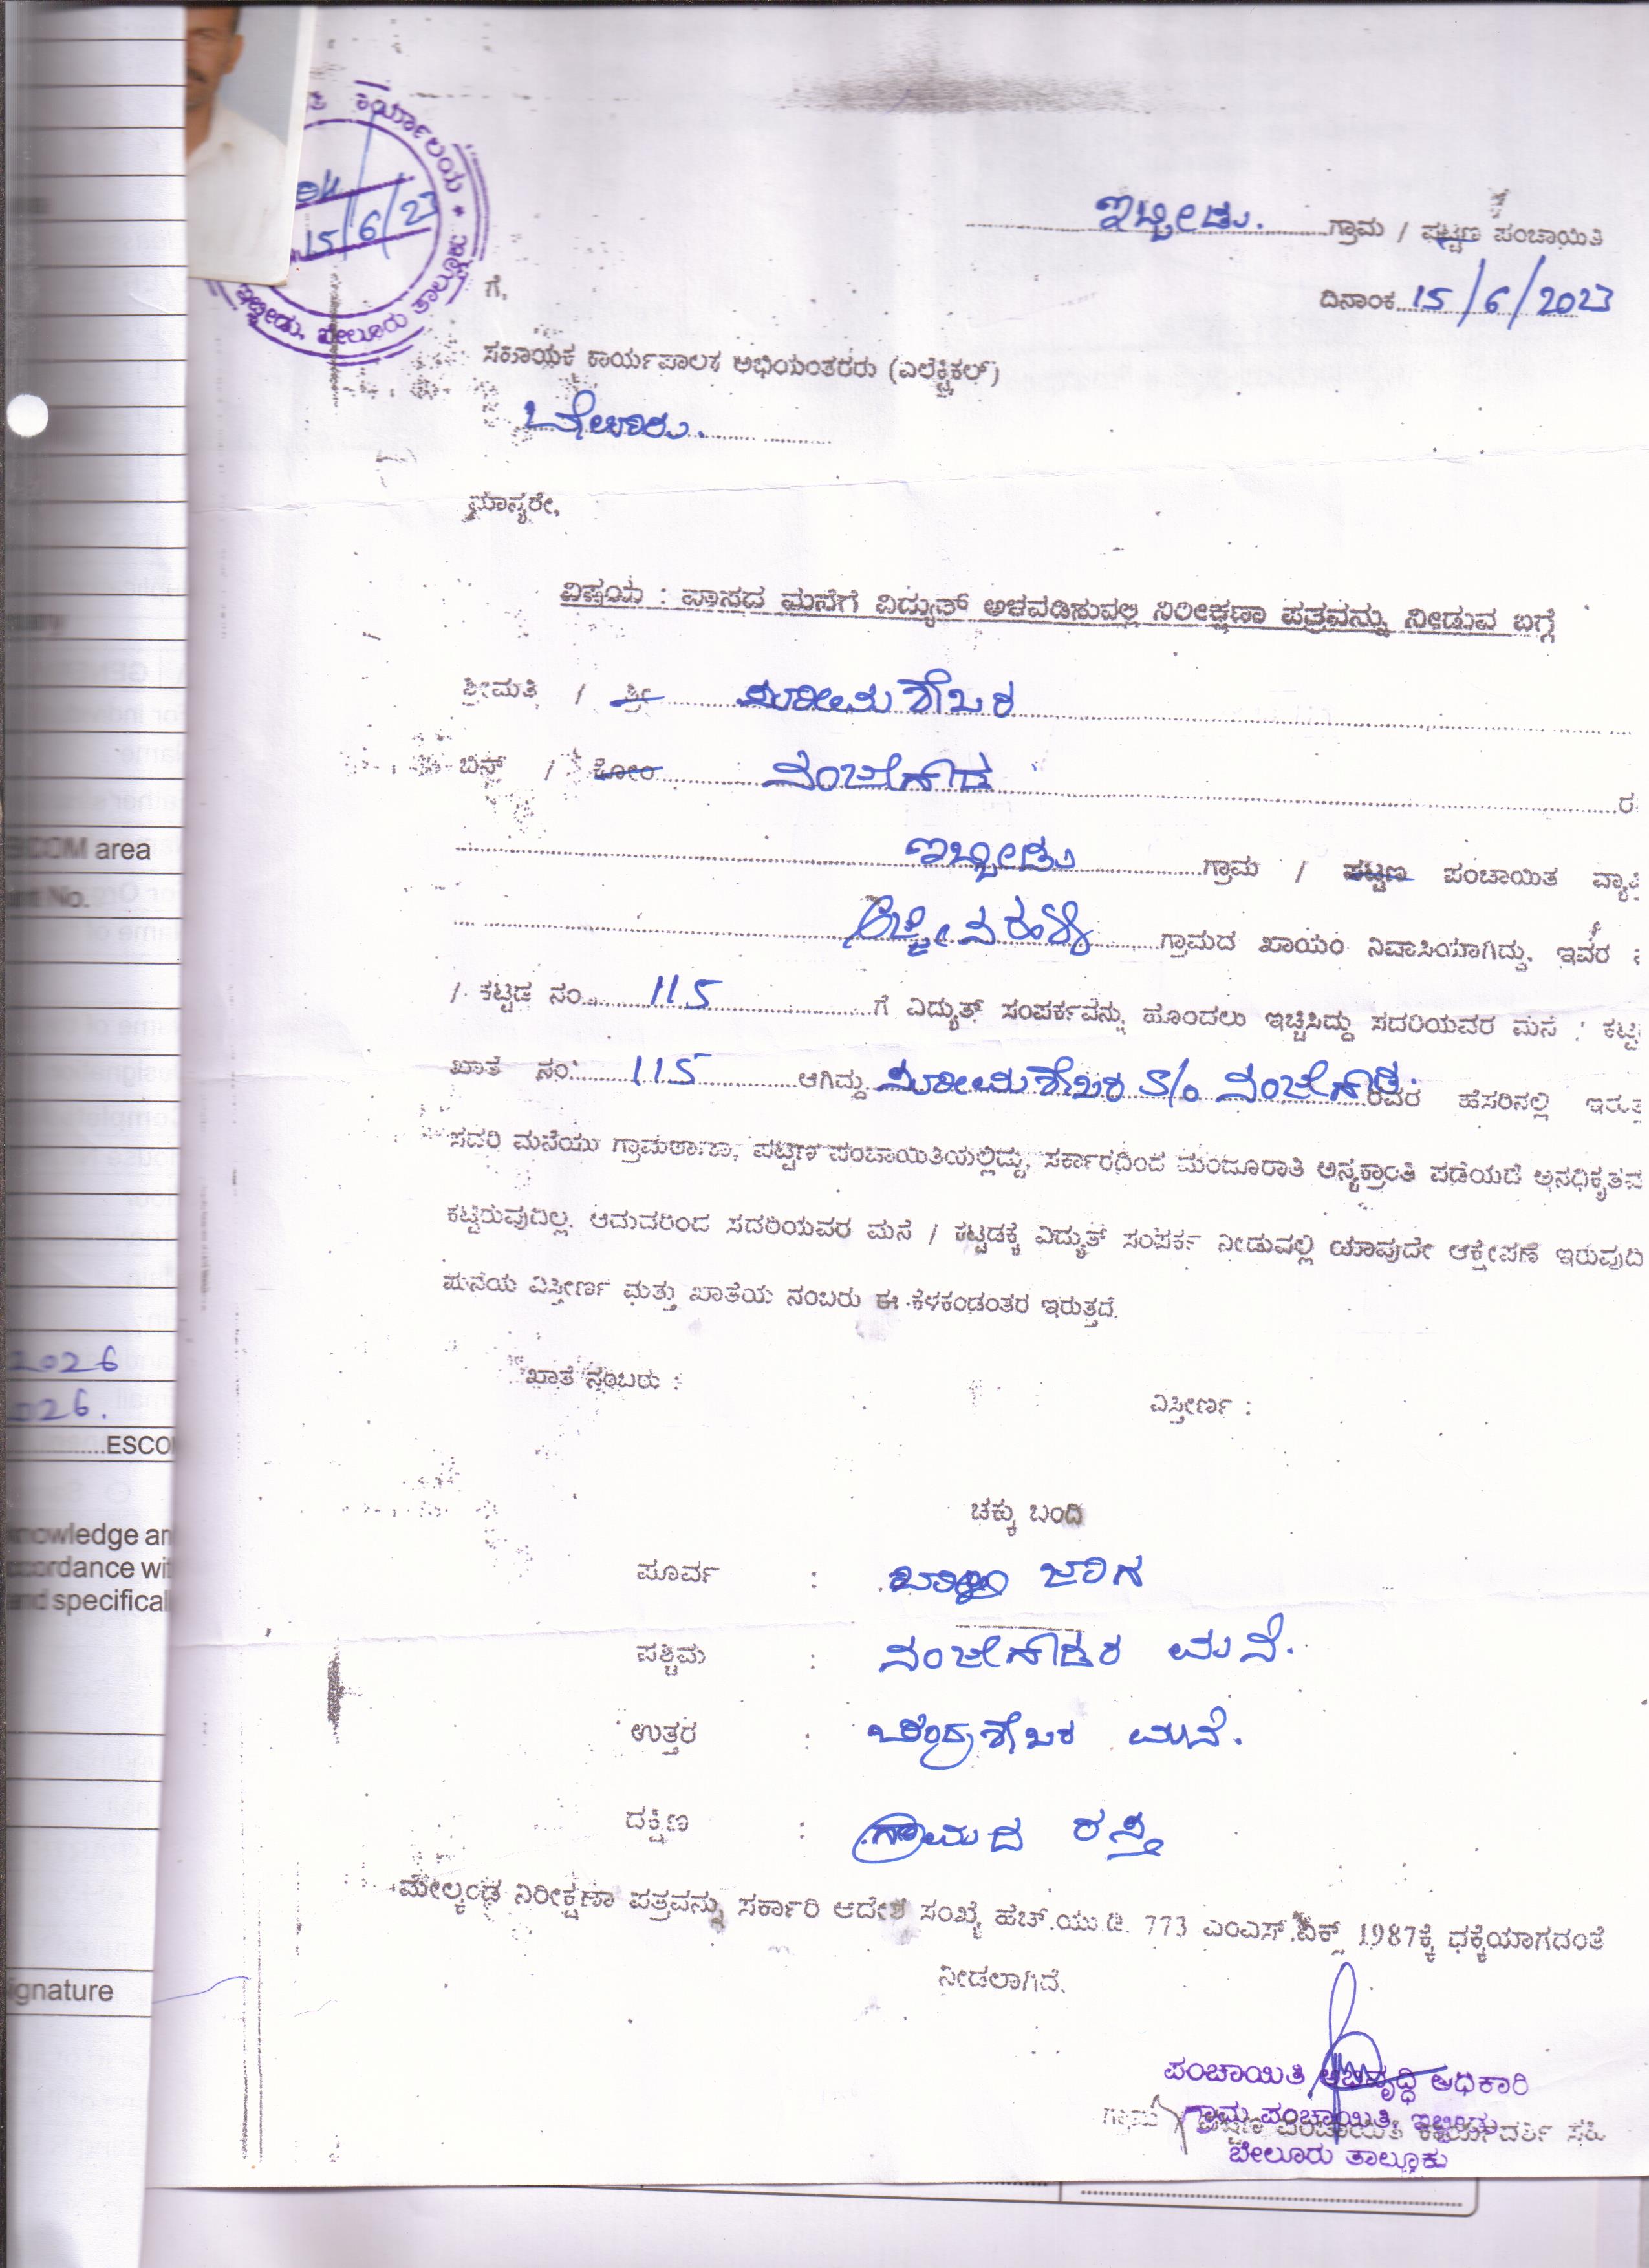 ಕಾರ್ಯಾಲಯ *
15/6/23
ಇಬ್ಬೀಡು, ಬೇಲೂರು ತಾಲ್ಲೂಕು
ಇಬ್ಬೀಡು. ಗ್ರಾಮ / ಪಟ್ಟಣ ಪಂಚಾಯಿತಿ
ದಿನಾಂಕ 15/6/2023
ಗೆ,
ಸಹಾಯಕ ಕಾರ್ಯಪಾಲಕ ಅಭಿಯಂತರರು (ಎಲೆಕ್ಟ್ರಿಕಲ್)
ಬೇಲೂರು.
ಮಾನ್ಯರೇ,
ವಿಷಯ : ವಾಸದ ಮನೆಗೆ ವಿದ್ಯುತ್ ಅಳವಡಿಸುವಲ್ಲಿ ನಿರೀಕ್ಷಣಾ ಪತ್ರವನ್ನು ನೀಡುವ ಬಗ್ಗೆ
ಶ್ರೀಮತಿ / ಶ್ರೀ
ಬಿನ್ / ಕೋಂ ನಂಜೇಗೌಡ ರ
ಇಬ್ಬೀಡು ಗ್ರಾಮ / ಪಟ್ಟಣ ಪಂಚಾಯಿತ
ಗ್ರಾಮದ ಖಾಯಂ ನಿವಾಸಿಯಾಗಿದ್ದು, ಇವರ
/ ಕಟ್ಟಡ ನಂ 115 ಗೆ ವಿದ್ಯುತ್ ಸಂಪರ್ಕವನ್ನು ಹೊಂದಲು ಇಚ್ಚಿಸಿದ್ದು ಸದರಿಯವರ ಮನೆ /
ಖಾತೆ ನಂ 115 ಆಗಿದ್ದು S/o ನಂಜೇಗೌಡ. ರವರ ಹೆಸರಿನಲ್ಲಿ
ಸದರಿ ಮನೆಯು ಗ್ರಾಮಠಾಣಾ, ಪಟ್ಟಣ ಪಂಚಾಯಿತಿಯಲ್ಲಿದ್ದು, ಸರ್ಕಾರದಿಂದ ಮಂಜೂರಾತಿ ಅನ್ಯಕ್ರಾಂತಿ ಪಡೆಯದೆ
ಕಟ್ಟಿರುವುದಿಲ್ಲ. ಆದುದರಿಂದ ಸದರಿಯವರ ಮನೆ / ಕಟ್ಟಡಕ್ಕೆ ವಿದ್ಯುತ್ ಸಂಪರ್ಕ ನೀಡುವಲ್ಲಿ ಯಾವುದೇ ಆಕ್ಷೇಪಣೆ ಇರುವುದಿ
ಮನೆಯ ವಿಸ್ತೀರ್ಣ ಮತ್ತು ಖಾತೆಯ ನಂಬರು ಈ ಕೆಳಕಂಡಂತರ ಇರುತ್ತದೆ.
ಖಾತೆ ನಂಬರು :
ವಿಸ್ತೀರ್ಣ :
ಚಕ್ಕು ಬಂದಿ
ಪೂರ್ವ : ಜಾಗ
ಪಶ್ಚಿಮ : ನಂಜೇಗೌಡರ ಮನೆ.
ಉತ್ತರ : ಚಂದ್ರಶೇಖರ ಮನೆ.
ದಕ್ಷಿಣ : ಗ್ರಾಮದ ರಸ್ತೆ
ಮೇಲ್ಕಂಡ ನಿರೀಕ್ಷಣಾ ಪತ್ರವನ್ನು ಸರ್ಕಾರಿ ಆದೇಶ ಸಂಖ್ಯೆ ಹೆಚ್.ಯು.ಡಿ. 773 1987ಕ್ಕೆ ಧಕ್ಕೆಯಾಗದಂತೆ
ನೀಡಲಾಗಿದೆ.
ಪಂಚಾಯಿತಿ ಅಭಿವೃದ್ಧಿ ಅಧಿಕಾರಿ
ಗ್ರಾಮ ಪಂಚಾಯಿತಿ, ಇಬ್ಬೀಡು
ಬೇಲೂರು ತಾಲ್ಲೂಕು
area
No.
2026
026.
ESCO
and specifical